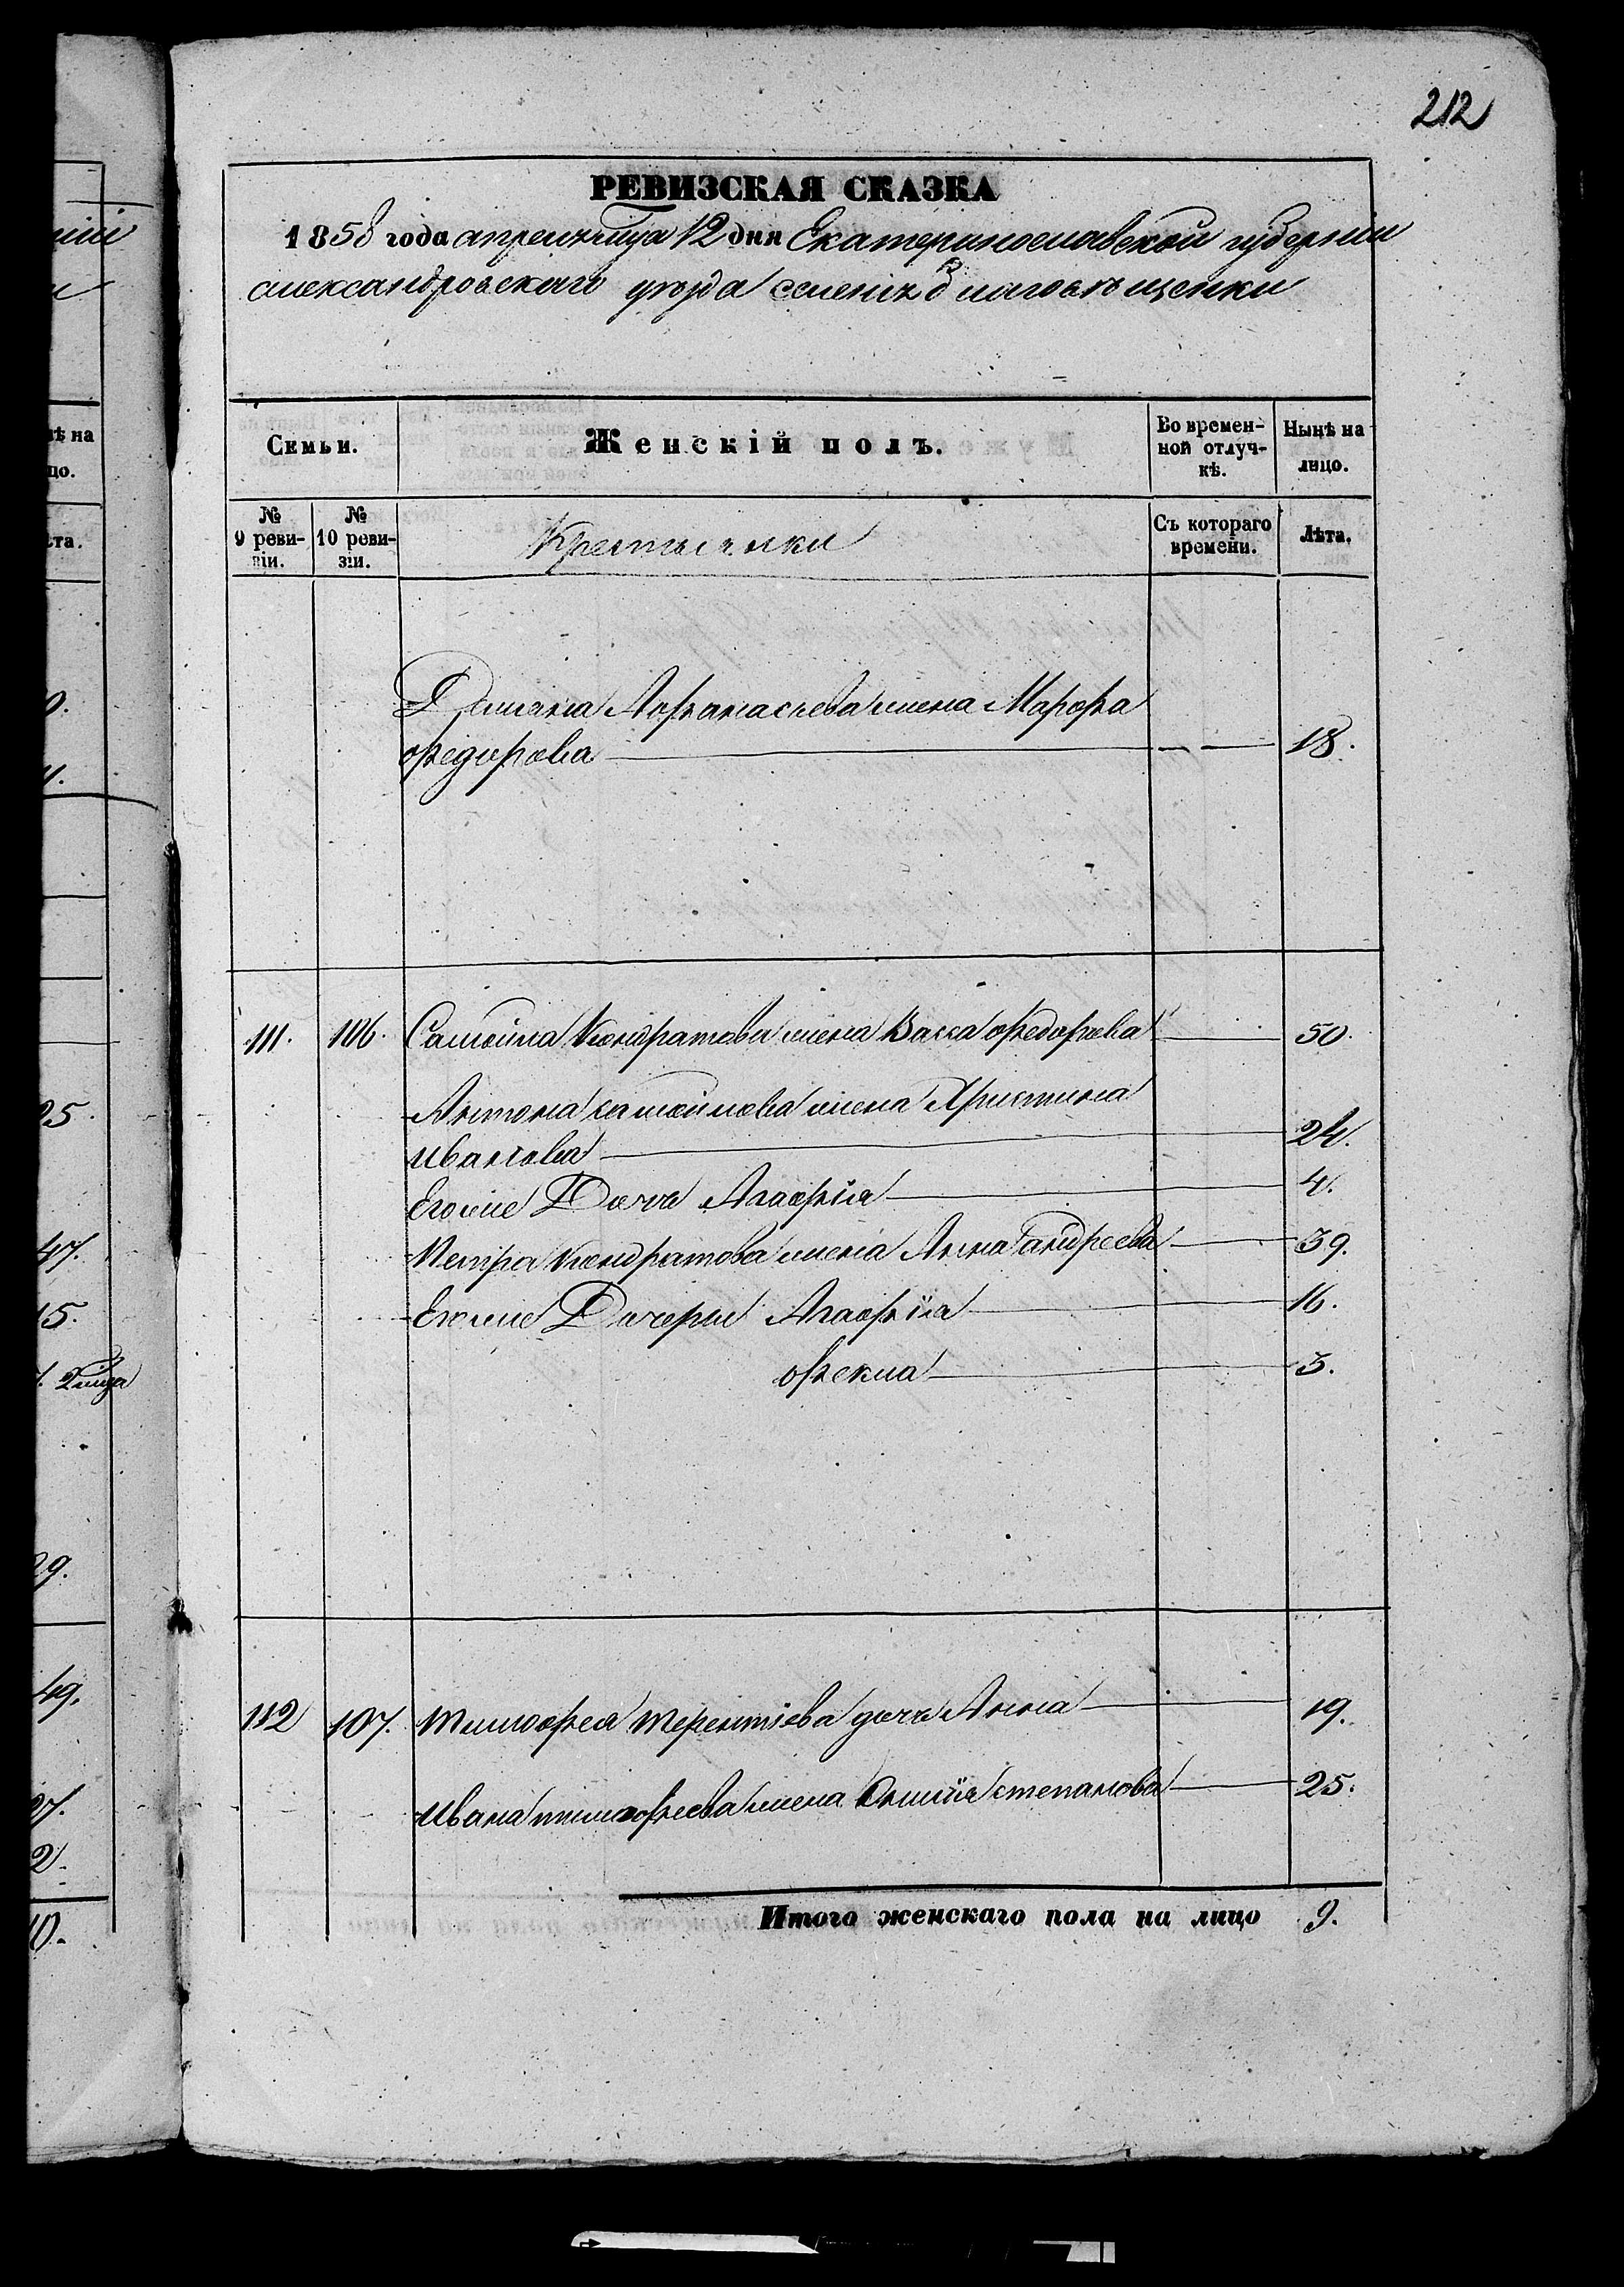 212
РЕВИЗСКАЯ СКАЗКА
1858 года апреля месяца 12 дня Екатеринославской губернии
александровского уезда селения благовещенки
Семьи.
Женскій полъ.
Во времен-
ной отлуч-
кѣ.
Нынѣ на
лицо.
№
9 реви-
зіи.
№
10 реви-
зіи.
Крестьянки
Съ котораго
времени.
Лѣта.
Демьяна Афанасьева жена Марфа
федорова 18.
111. 106. Самойла Кондратова жена Васса федорова 50.
Антона самойлова жена Христина
иванова 24.
Егоже Дочь Агафія 4.
Петра Кондратова жена Анна андреева 39.
Егоже Дочери Агафія 16.
фекла 3.
112 107. тимофея терентіева дочь Анна 19.
ивана тимофеева жена степанова 25.
Итого женскаго пола на лицо 9.
25
47.
15.
29.
49.
27.
2.
10.